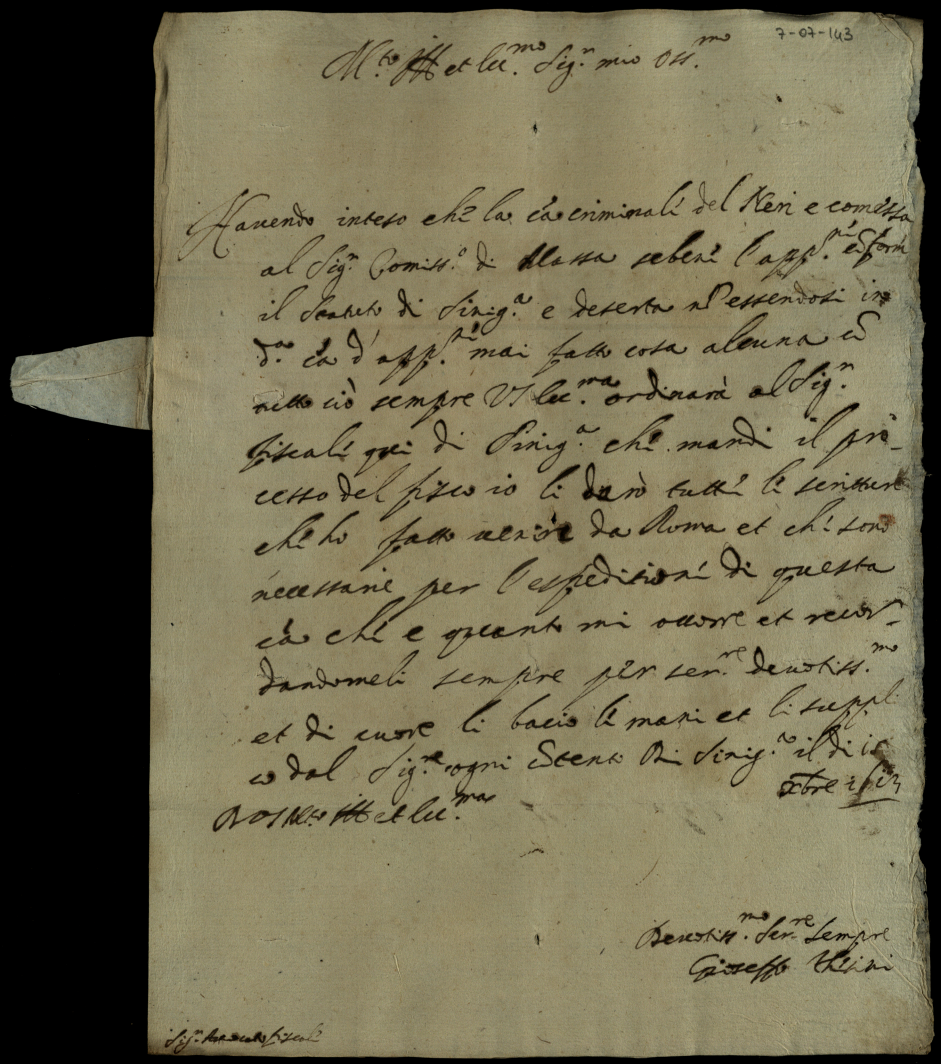 7-07-143
M.to Ill et Ecc.mo Sig.r mio Oss.mo
Havendo inteso che la cã criminale del Neri e comessa
al Sig.r Comiss.o di Massa sebene l'app.ne
il Statuto di Sinig.a e deserta nõ essendosi in
d.a cã d'app.ne mai fatto cosa alcuna cõ
tutto ciò sempre VS Ecc.ma ordinarà al Sig.r
fiscale qui di Sinig.a che mandi il pro-
cesso del fisco io li darò tutte le scritture
che ho fatto venire da Roma et che sono
necessarie per l'espeditione di questa
cã che e quanto mi occorre et recor-
dandomeli sempre per ser.re devotiss.mo
et di cuore li bacio le mani et li suppli
co dal Sig.re ogni cõtento Di Sinig.a il di
xbre
Di VS M.to Ill et Ecc.ma
Devotiss.mo Ser.re Sempre
Gioseffo
Sig.r Avocato fiscale